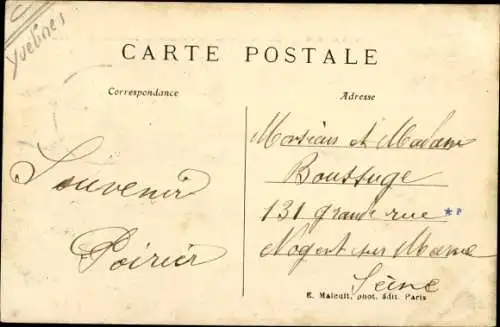 Yvelines
CARTE POSTALE
Correspondance
Adresse
Souvenir
Poirier
Monsieur et Madame
Boussuge
131 grande rue
Nogent sur Marne
Seine
E. Malcuit, phot. édit. Paris